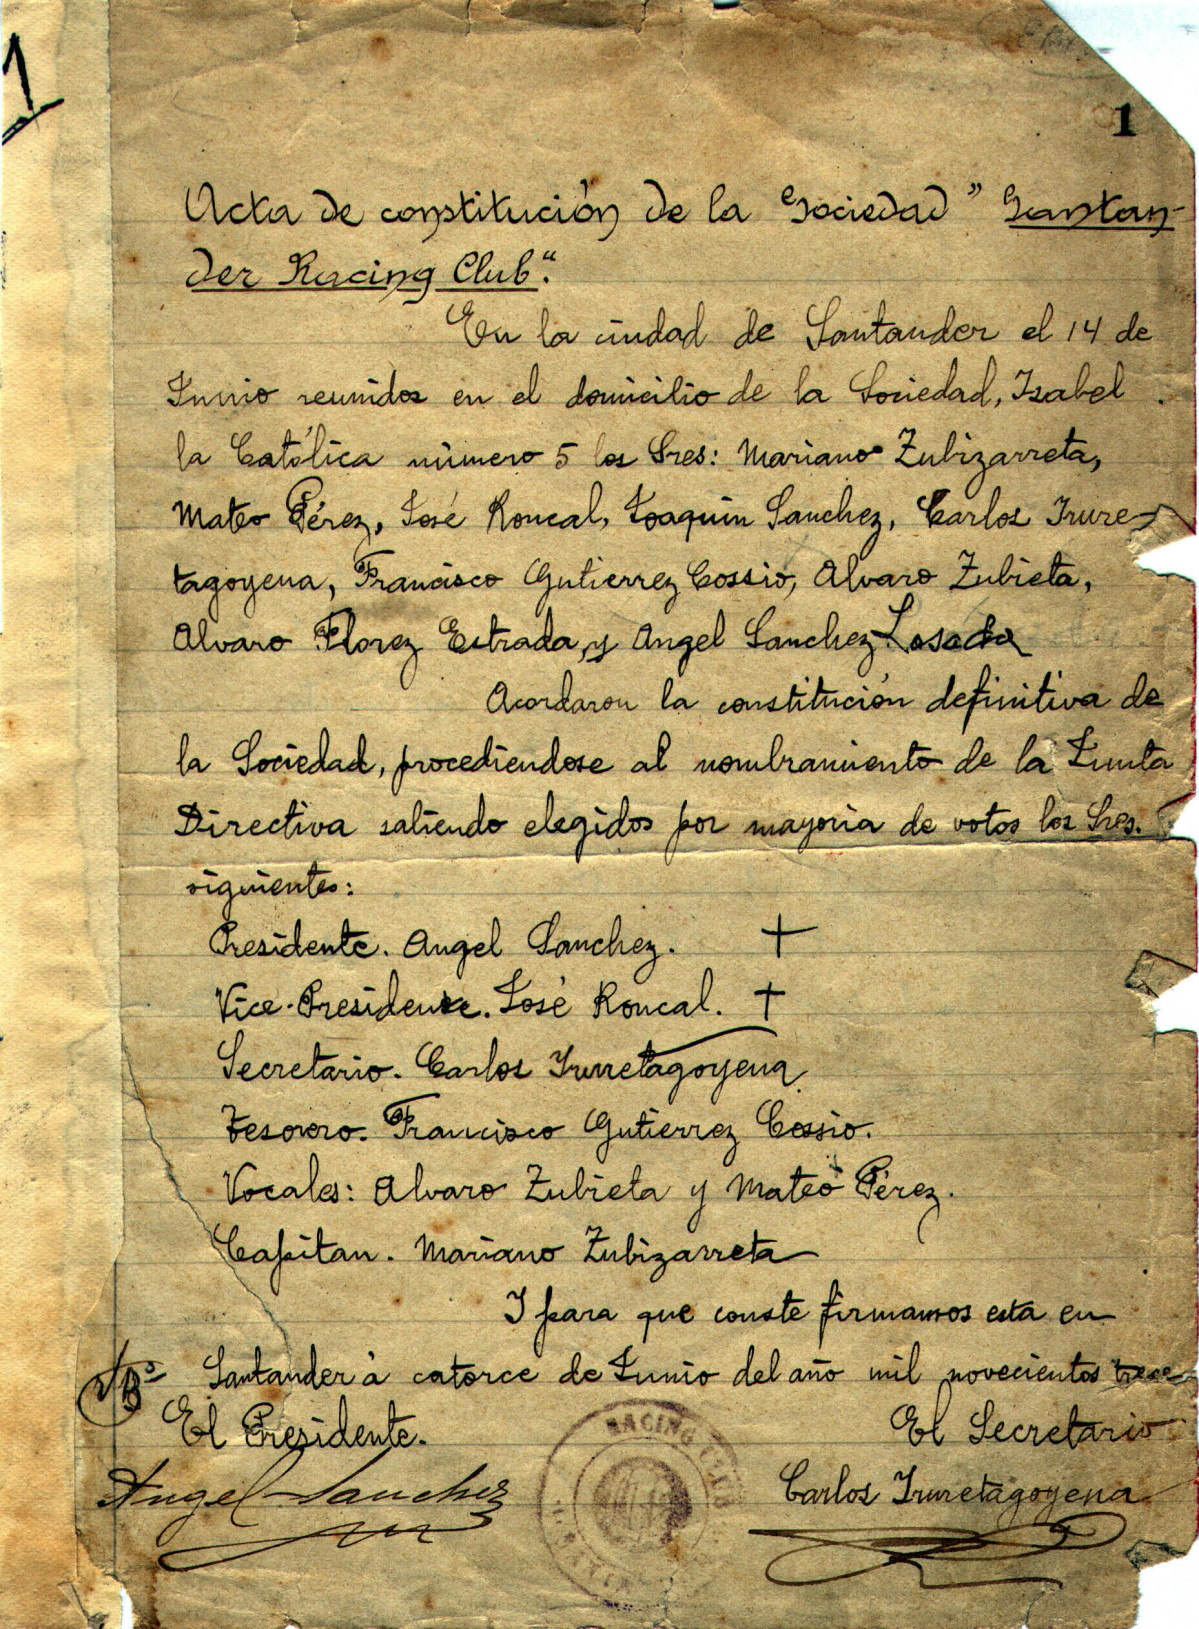 1
1
Acta de constitución de la Sociedad "Santan-
der Racing Club".
En la ciudad de Santander el 14 de
Junio reunidos en el domicilio de la Sociedad, Isabel
la Católica número 5 los Sres: Mariano Zubizarreta,
Mateo Pérez, José Roncal, Joaquin Sanchez, Carlos Irure-
tagoyena, Francisco Gutierrez Cossio, Alvaro Zubieta,
Alvaro Florez Estrada, y Angel Sanchez Losada
Acordaron la constitución definitiva de
la Sociedad, procediendose al nombramiento de la Junta
Directiva saliendo elegidos por mayoria de votos los Sres.
siguientes:
Presidente. Angel Sanchez. +
Vice-Presidente. José Roncal. +
Secretario. Carlos Iruretagoyena
Tesorero. Francisco Gutierrez Cossio.
Vocales: Alvaro Zubieta y Mateo Pérez.
Capitan. Mariano Zubizarreta
I para que conste firmamos esta en
Santander á catorce de Junio del año mil novecientos trece
VºBº
El Presidente. El Secretario
Angel Sanchez Carlos Iruretagoyena
RACING CLUB